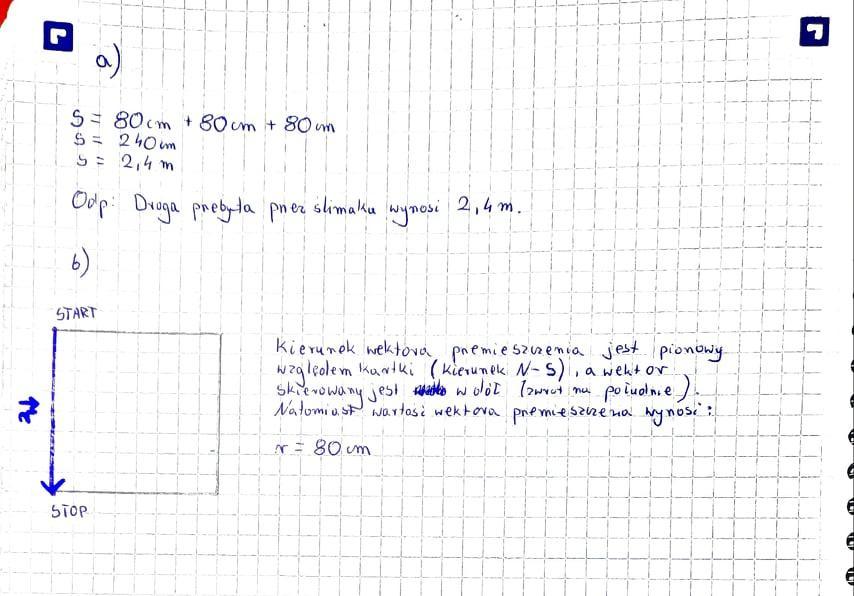 a)
S = 80cm + 80cm + 80cm
S = 240cm
S = 2,4 m
Odp: Droga przebyta przez ślimaka wynosi 2,4 m.
b)
START
Kierunek wektora przemieszczenia jest pionowy
względem kartki (kierunek N-S), a wektor
skierowany jest w dół (zwrot na południe).
Natomiast wartość wektora przemieszczena wynosi:
r = 80 cm
STOP